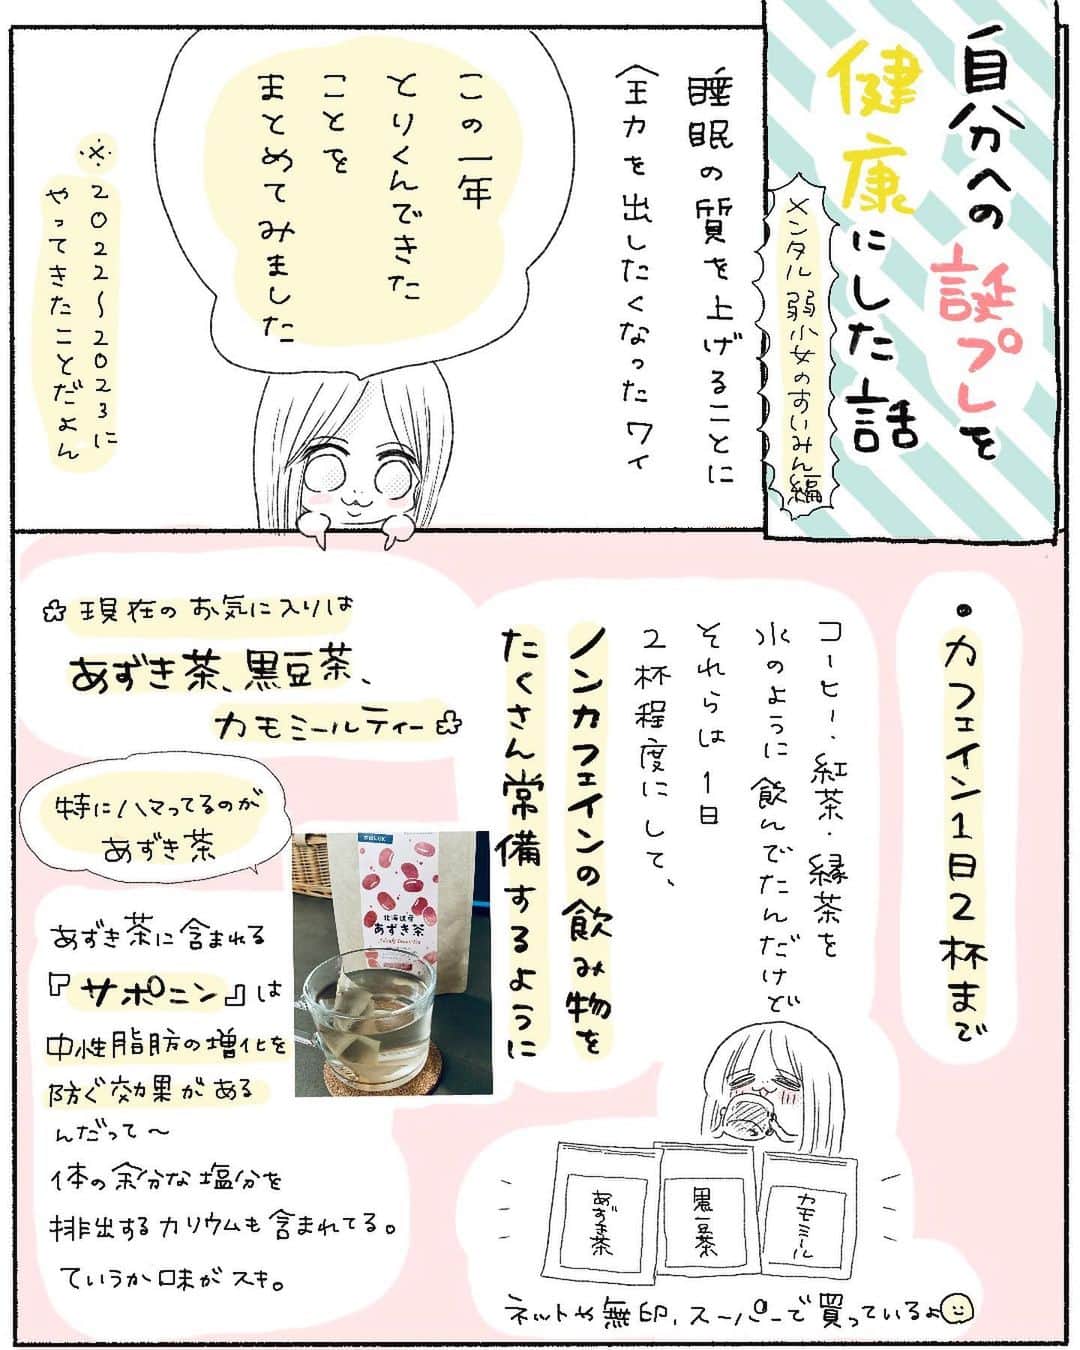 自分への誕プレを
健康にした話
メンタル弱小女のすいみん編
睡眠の質を上げることに
全力を出したくなったワイ
この一年
とりくんできた
ことを
まとめてみました
※2022〜2023に
やってきたことだよん
•カフェイン1日2杯まで
コーヒー・紅茶・緑茶を
水のように飲んでたんだけど
それらは1日
2杯程度にして、
ノンカフェインの飲み物を
たくさん常備するように
カモミール
黒豆茶
あずき茶
ネットや無印、スーパーで買っているよ
現在のお気に入りは
あずき茶、黒豆茶、
カモミールティー
特にハマってるのが
あずき茶
北海道産
あずき茶
あずき茶に含まれる
『サポニン』は
中性脂肪の増化を
防ぐ効果がある
んだって〜
体の余分な塩分を
排出するカリウムも含まれてる。
ていうか味がスキ。